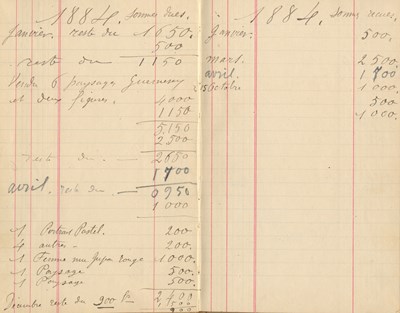 1884. sommes dues.
Janvier. reste du 1650.
500
reste du 1150
Vendu 6 paysages Guernesey
et deux figures. 4000
1150
5.150
2500
reste du — 2650
1700
avril. reste du — 0950
1000
1 Portrait Pastel. 200
4 autres - 200.
1 Femme nue jupon rouge 1000.
1 Paysage 500.
1 Paysage 500.
Décembre reste du 900 2,400
1500
1884. sommes reçues.
Janvier. 500.
mars. 2500
avril. 1700
15 Octobre 1000.
500
1000.